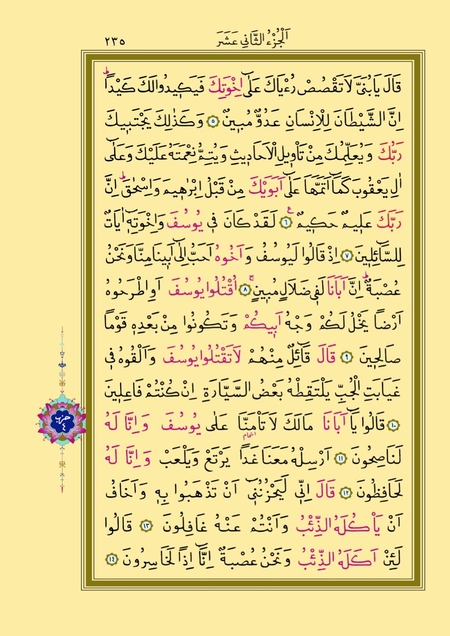 اَلْجُزْءُ الثَّانِي عَشَرَ ٢٣٥
قَالَ يَا بُنَيَّ لَا تَقْصُصْ رُءْيَاكَ عَلٰٓى اِخْوَتِكَ فَيَكِيدُوا لَكَ كَيْدًاۜ
اِنَّ الشَّيْطَانَ لِلْاِنْسَانِ عَدُوٌّ مُبِينٌ ﴿٥﴾ وَكَذٰلِكَ يَجْتَبِيكَ
رَبُّكَ وَيُعَلِّمُكَ مِنْ تَأْوِيلِ الْاَحَادِيثِ وَيُتِمُّ نِعْمَتَهُ عَلَيْكَ وَعَلٰٓى
اٰلِ يَعْقُوبَ كَمَٓا اَتَمَّهَا عَلٰٓى اَبَوَيْكَ مِنْ قَبْلُ اِبْرٰهِيمَ وَاِسْحٰقَۜ اِنَّ
رَبَّكَ عَلِيمٌ حَكِيمٌ ﴿٦﴾ لَقَدْ كَانَ فِي يُوسُفَ وَاِخْوَتِهٓ اٰيَاتٌ
لِلسَّٓائِلِينَ ﴿٧﴾ اِذْ قَالُوا لَيُوسُفُ وَاَخُوهُ اَحَبُّ اِلٰٓى اَبِينَا مِنَّا وَنَحْنُ
عُصْبَةٌۜ اِنَّ اَبَانَا لَفِي ضَلَالٍ مُبِينٍۚ ﴿٨﴾ اُقْتُلُوا يُوسُفَ اَوِ اطْرَحُوهُ
اَرْضًا يَخْلُ لَكُمْ وَجْهُ اَبِيكُمْ وَتَكُونُوا مِنْ بَعْدِهٖ قَوْمًا
صَالِحِينَ ﴿٩﴾ قَالَ قَٓائِلٌ مِنْهُمْ لَا تَقْتُلُوا يُوسُفَ وَاَلْقُوهُ فِي
غَيَابَتِ الْجُبِّ يَلْتَقِطْهُ بَعْضُ السَّيَّارَةِ اِنْ كُنْتُمْ فَاعِلِينَ
﴿١٠﴾ قَالُوا يَٓا اَبَانَا مَالَكَ لَا تَأْمَنَّا عَلٰى يُوسُفَ وَاِنَّا لَهُ
لَنَاصِحُونَ ﴿١١﴾ اَرْسِلْهُ مَعَنَا غَدًا يَرْتَعْ وَيَلْعَبْ وَاِنَّا لَهُ
لَحَافِظُونَ ﴿١٢﴾ قَالَ اِنِّي لَيَحْزُنُنِٓي اَنْ تَذْهَبُوا بِهٖ وَاَخَافُ
اَنْ يَأْكُلَهُ الذِّئْبُ وَاَنْتُمْ عَنْهُ غَافِلُونَ ﴿١٣﴾ قَالُوا
لَئِنْ اَكَلَهُ الذِّئْبُ وَنَحْنُ عُصْبَةٌ اِنَّٓا اِذًا لَخَاسِرُونَ ﴿١٤﴾
حزب
٤